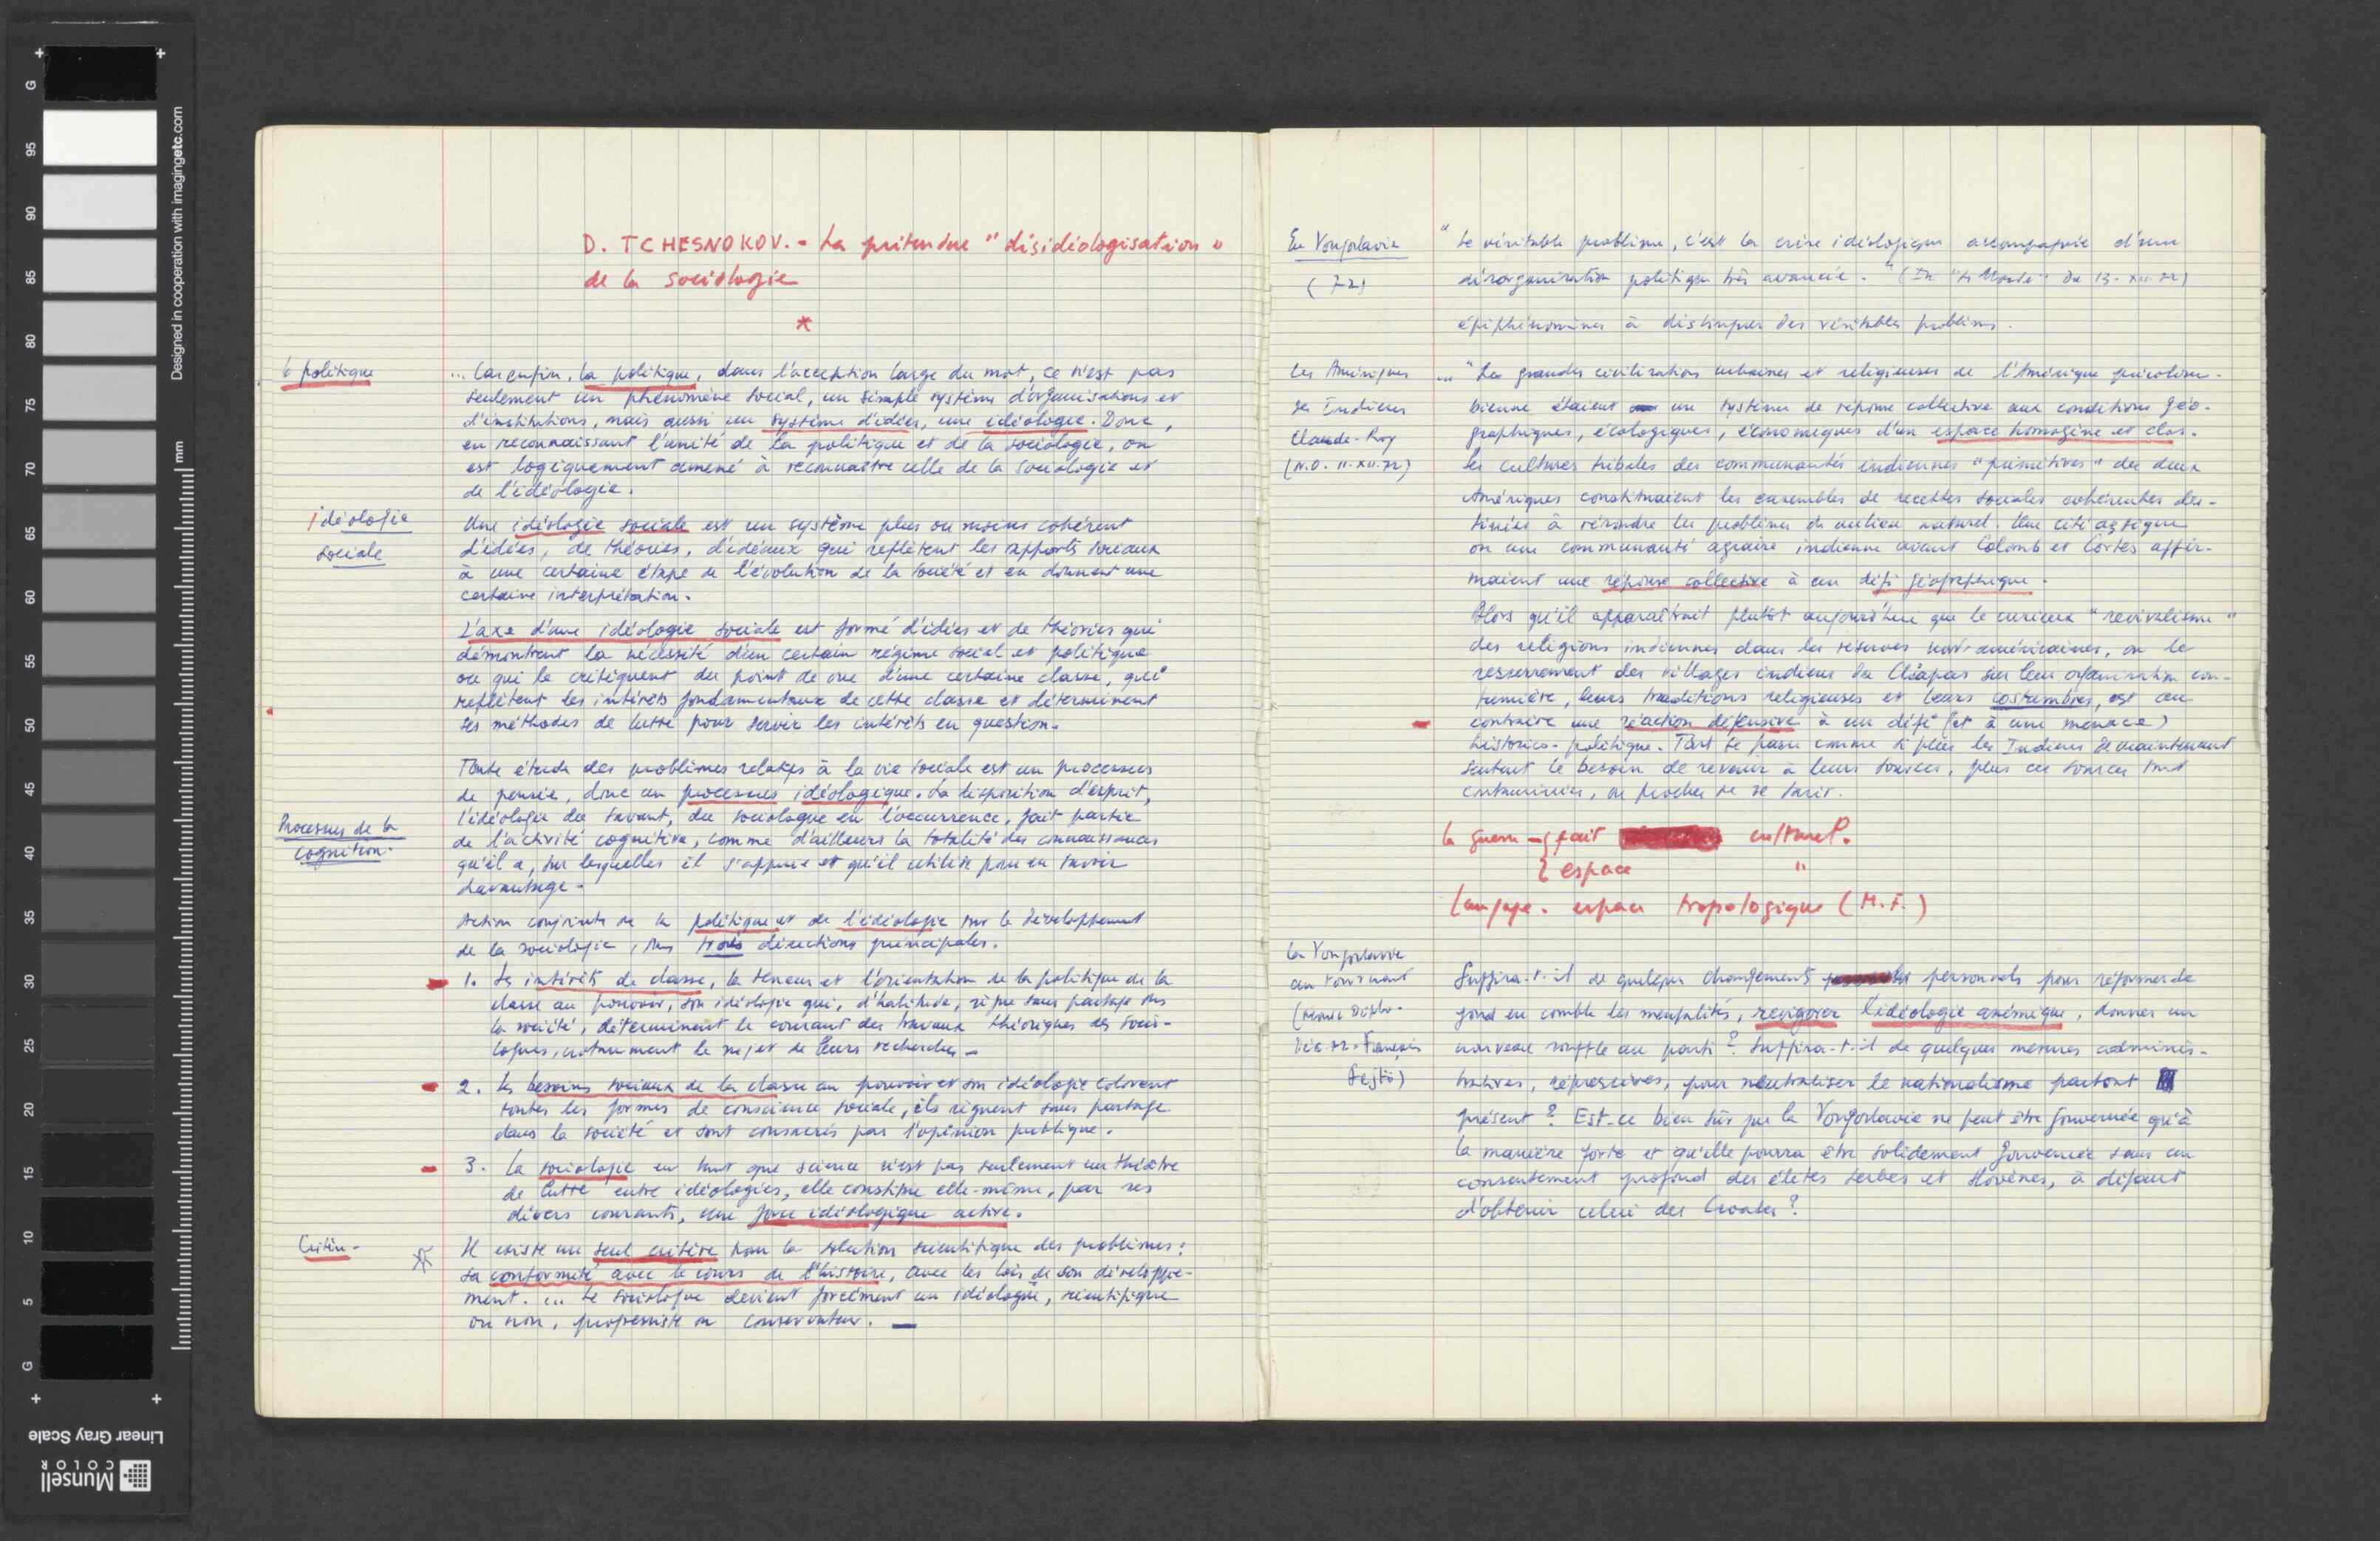 D. TCHESNOKOV. - La prétendue "désidéologisation"
de la sociologie
*
la politique
... Car enfin, la politique, dans l'acception large du mot, ce n'est pas
seulement un phénomène social, un simple système d'organisations et
d'institutions, mais aussi un système d'idées, une idéologie. Donc,
en reconnaissant l'unité de la politique et de la sociologie, on
est logiquement amené à reconnaître celle de la sociologie et
de l'idéologie.
idéologie
sociale
Une idéologie sociale est un système plus ou moins cohérent
d'idées, de théories, d'idéaux qui reflètent les rapports sociaux
à une certaine étape de l'évolution de la société et en donnent une
certaine interprétation.
L'axe d'une idéologie sociale est formé d'idées et de théories qui
démontrent la nécessité d'un certain régime social et politique
ou qui le critiquent du point de vue d'une certaine classe, qui
reflètent les intérêts fondamentaux de cette classe et déterminent
ses méthodes de lutte pour servir les intérêts en question.
Toute étude des problèmes relatifs à la vie sociale est un processus
de pensée, donc un processus idéologique. La disposition d'esprit,
l'idéologie du savant, du sociologue en l'occurrence, fait partie
Processus de la
cognition.
de l'activité cognitive, comme d'ailleurs la totalité des connaissances
qu'il a, sur lesquelles il s'appuie et qu'il utilise pour en savoir
davantage.
Action conjointe de la politique et de l'idéologie sur le développement
de la sociologie, dans trois directions principales.
1. Les intérêts de classe, la teneur et l'orientation de la politique de la
classe au pouvoir, son idéologie qui, d'habitude, règne sans partage dans
la société, déterminent le courant des travaux théoriques des socio-
logues, notamment le sujet de leurs recherches.
2. Les besoins sociaux de la classe au pouvoir et son idéologie colorent
toutes les formes de conscience sociale, ils règnent sans partage
dans la société et sont consacrés par l'opinion publique.
3. La sociologie en tant que science n'est pas seulement un théâtre
de lutte entre idéologies, elle constitue elle-même, par ses
divers courants, une force idéologique active.
Critère -
Il existe un seul critère pour la solution scientifique des problèmes :
sa conformité avec le cours de l'histoire, avec les lois de son développe-
ment. ... Le sociologue devient forcément un idéologue, scientifique
ou non, progressiste ou conservateur. —
En Yougoslavie
(72)
"Le véritable problème, c'est la crise idéologique accompagnée d'une
désorganisation politique très avancée." (In "Le Monde" du 13-XII-72)
épiphénomènes à distinguer des véritables problèmes.
Les Amériques
des Indiens
Claude-Roy
(N.O. 11.XII.72)
... "Les grandes civilisations urbaines et religieuses de l'Amérique précolom-
bienne étaient un système de réponse collective aux conditions géo-
graphiques, écologiques, économiques d'un espace homogène et clos.
Les cultures tribales des communautés indiennes "primitives" des deux
Amériques constituaient les ensembles de recettes sociales cohérentes des-
tinées à résoudre les problèmes du milieu naturel. Une cité aztèque
ou une communauté agraire indienne avant Colomb et Cortès affir-
maient une réponse collective à un défi géographique.
Alors qu'il apparaîtrait plutôt aujourd'hui que le curieux "revivalisme"
des religions indiennes dans les réserves nord-américaines, ou le
resserrement des villages indiens du Chiapas sur leur organisation cou-
tumière, leurs traditions religieuses et leurs costumbres, est au
contraire une réaction défensive à un défi (et à une menace)
historico-politique. Tout se passe comme si plus les Indiens de maintenant
sentent le besoin de revenir à leurs sources, plus ces sources sont
contaminées, ou proches de se tarir.
la guerre → fait culturel.
espace "
Langage. espace tropologique (M.F.)
La Yougoslavie
au tournant
(Monde Diplo-
Déc 72 - François
Fejtö)
Suffira-t-il de quelques changements personnels pour réformer de
fond en comble les mentalités, revigorer l'idéologie anémique, donner un
nouveau souffle au parti ? Suffira-t-il de quelques mesures adminis-
tratives, répressives, pour neutraliser le nationalisme partout
présent ? Est-ce bien sûr que la Yougoslavie ne peut être gouvernée qu'à
la manière forte et qu'elle pourra être solidement gouvernée sans un
consentement profond des élites serbes et slovènes, à défaut
d'obtenir celui des Croates ?
G
95
90
85
80
75
70
65
60
55
50
45
40
35
30
25
20
15
10
5
G
mm
Designed in cooperation with imagingetc.com
Linear Gray Scale
Munsell
COLOR